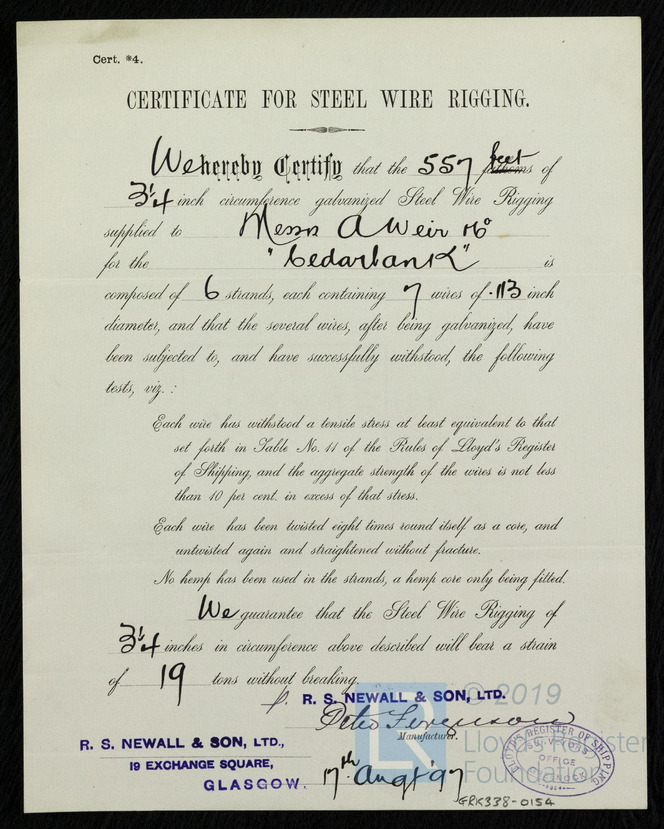 Cert. *4.
CERTIFICATE FOR STEEL WIRE RIGGING.
We hereby Certify that the 557 feet fathoms of
3 1/4 inch circumference galvanized Steel Wire Rigging
supplied to Messrs A Weir & Co
for the "Cedarbank" is
composed of 6 strands, each containing 7 wires of .113 inch
diameter, and that the several wires, after being galvanized, have
been subjected to, and have successfully withstood, the following
tests, viz. :
Each wire has withstood a tensile stress at least equivalent to that
set forth in Table No. 11 of the Rules of Lloyd's Register
of Shipping, and the aggregate strength of the wires is not less
than 10 per cent. in excess of that stress.
Each wire has been twisted eight times round itself as a core, and
untwisted again and straightened without fracture.
No hemp has been used in the strands, a hemp core only being fitted.
We guarantee that the Steel Wire Rigging of
3 1/4 inches in circumference above described will bear a strain
of 19 tons without breaking.
p. R. S. NEWALL & SON, LTD.
Peter Ferguson
Manufacturer.
R. S. NEWALL & SON, LTD.,
19 EXCHANGE SQUARE,
GLASGOW.
17th Augt '97
LLOYD'S REGISTER OF SHIPPING
SURVEYORS
OFFICE
GRK338-0154
© 2019
LR
Lloyd's Register
Foundation